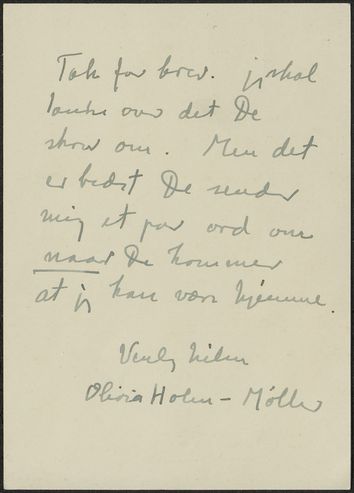 Tak for brev. jeg skal
tænke over det De
skrev om. Men det
er bedst De sender
mig et par ord om
naar De kommer
at jeg kan være hjemme.
Venlig hilsen
Olivia Holm-Møller